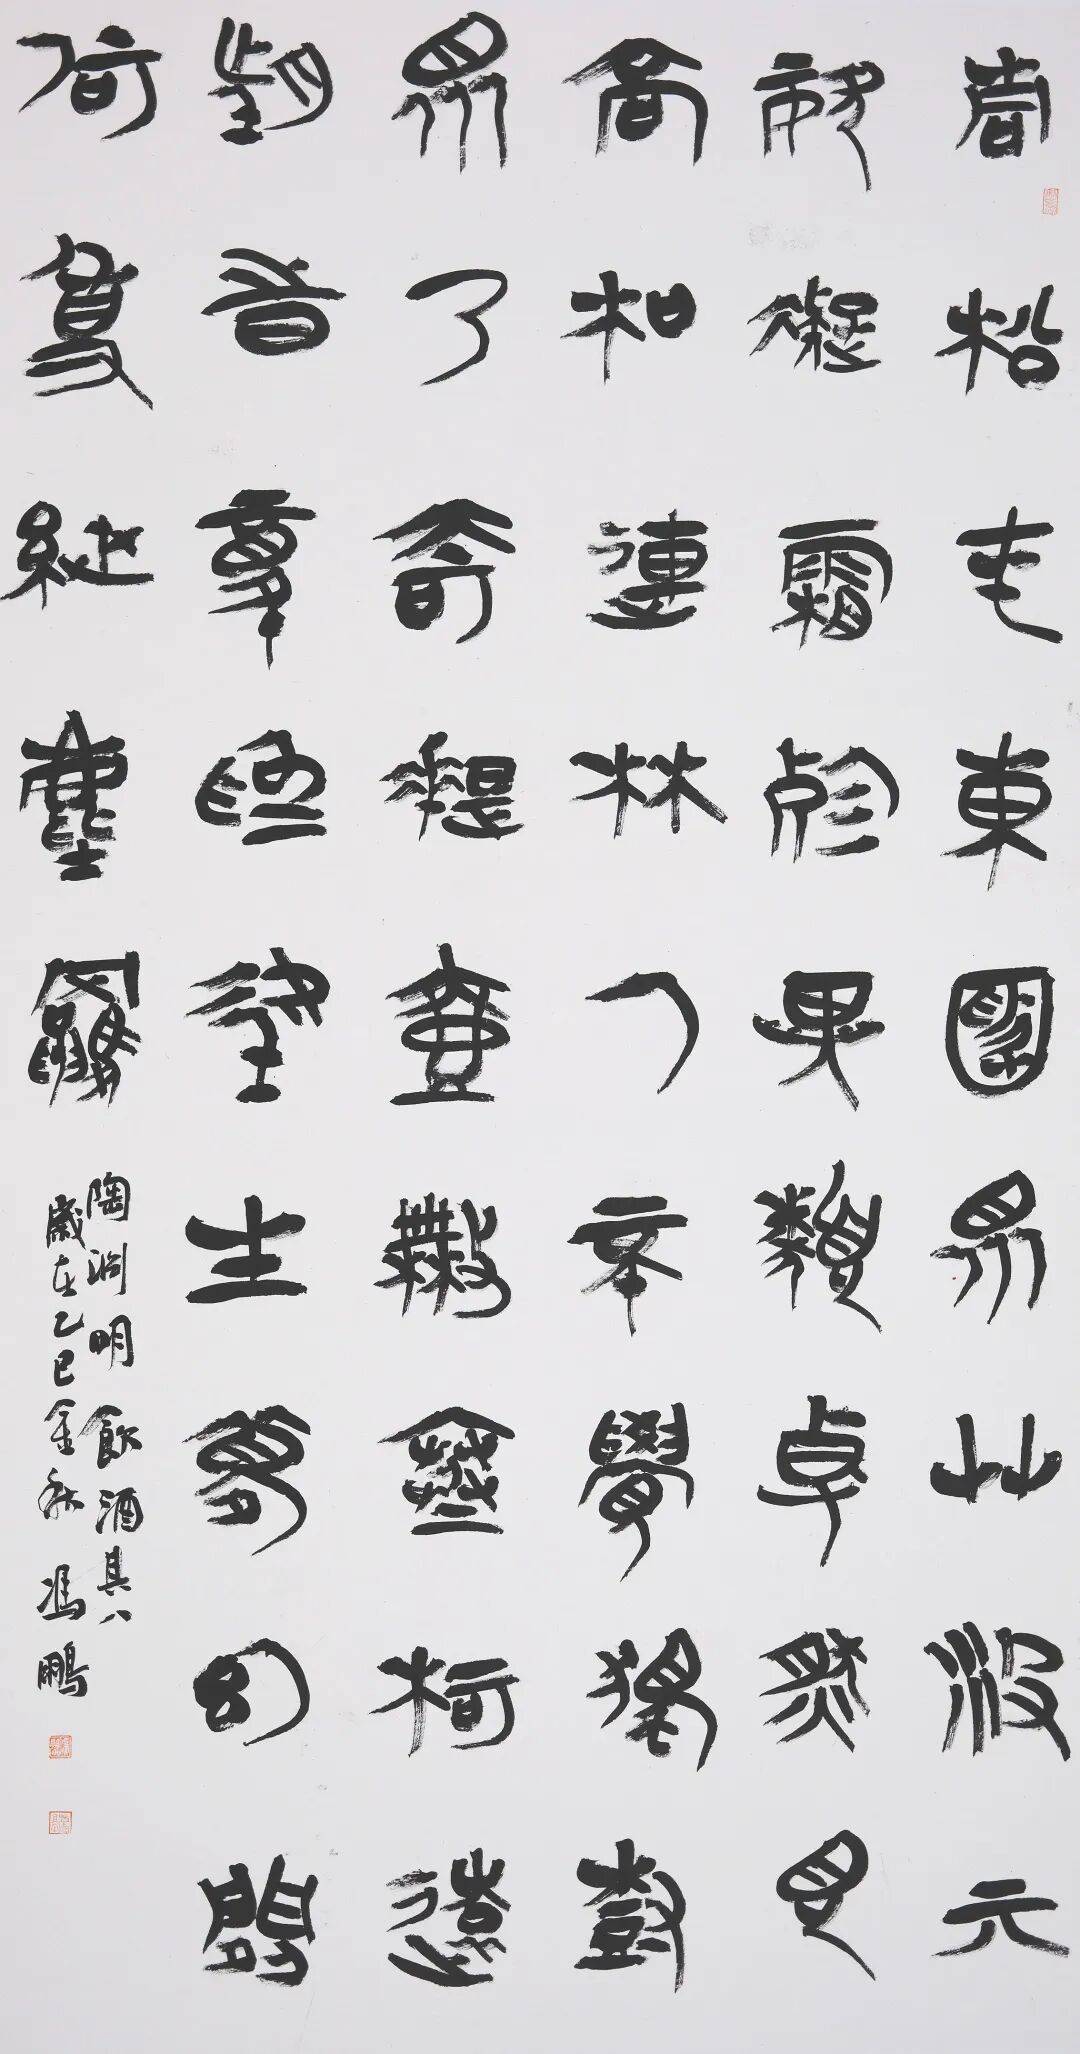 青松在東園眾艸沒亓
姿凝霜殄異類卓然見
高枝連林人不覺獨樹
眾乃奇提壺撫寒柯遠
望時復為吾生夢幻間
何事紲塵羈
陶淵明飲酒其八
歲在乙巳金秋馮鵬